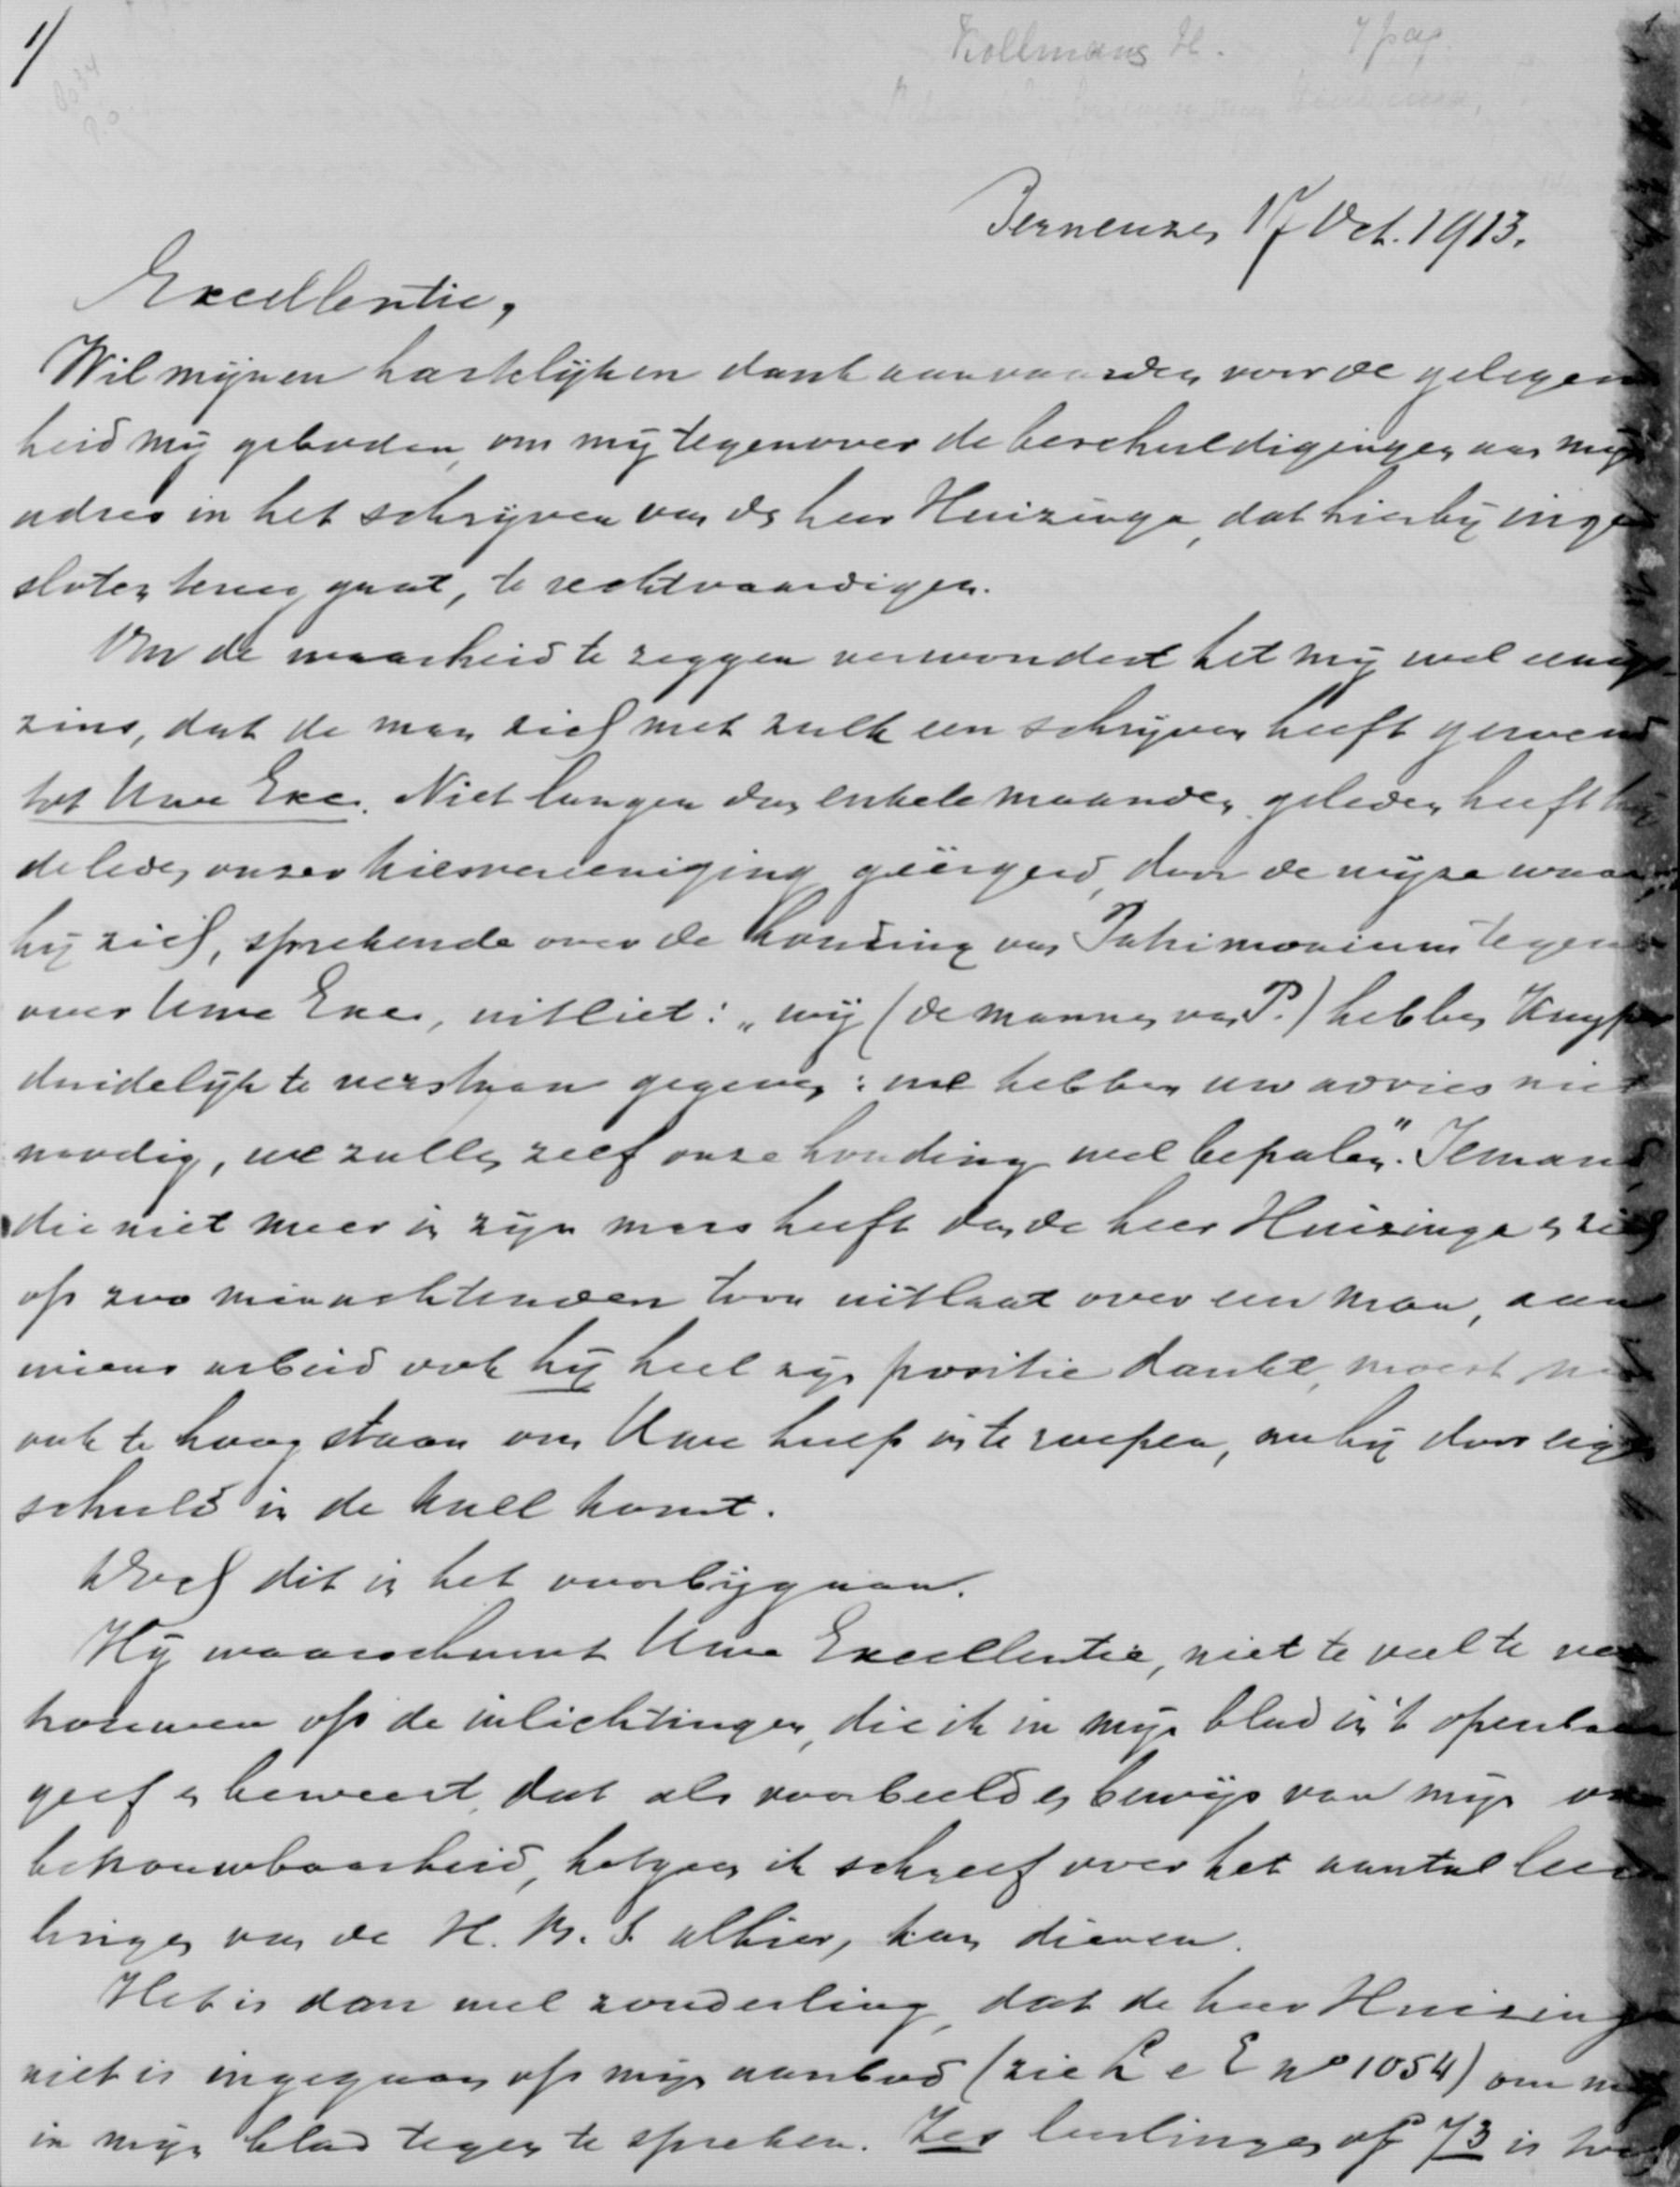 1/
Kollmans H. 7 pag.
Terneuzen 17 Oct. 1913.
Excellentie,
Wil mijnen hartelijken dank aanvaarden voor de gelegen
heid mij geboden, om mij tegenover de beschuldigingen aan mijn
adres in het schrijven van de heer Huizinga, dat hierbij inge
sloten terug gaat, te rechtvaardigen.
Om de waarheid te zeggen verwondert het mij wel eenigs
zins, dat de man zich met zulk een schrijven heeft gewend
tot Uwe Exc. Niet langer dan enkele maanden geleden heeft hij
de leden onzer kiesvereeniging geërgerd, door de wijze waarop
hij zich, sprekende over de houding van Patrimonium tegen
over Uwe Exc., uitliet: „wij (de mannen van P.) hebben Kuyper
duidelijk te verstaan gegeven: we hebben uw advies niet
noodig, we zullen zelf onze houding wel bepalen". Iemand,
die niet meer in zijn mars heeft dan de heer Huizinga en zich
op zoo minachtenden toon uitlaat over een man, aan
wiens arbeid ook hij heel zijn positie dankt, moest nu
ook te hoog staan om Uwe hulp in te roepen, nu hij door eigen
schuld in de knel komt.
Doch dit in het voorbijgaan.
Hij waarschuwt Uwe Excellentie, niet te veel te ver
trouwen op de inlichtingen, die ik in mijn blad in 't openbaar
geef en beweert, dat als voorbeeld en bewijs van mijn on
betrouwbaarheid, hetgeen ik schreef over het aantal leer
lingen van de H. B. S. alhier, kan dienen.
Het is dan wel zonderling, dat de heer Huizinga
niet is ingegaan op mijn aanbod (zie L e E no 1054) om mij
in mijn blad tegen te spreken. Zes leerlingen op 73 is